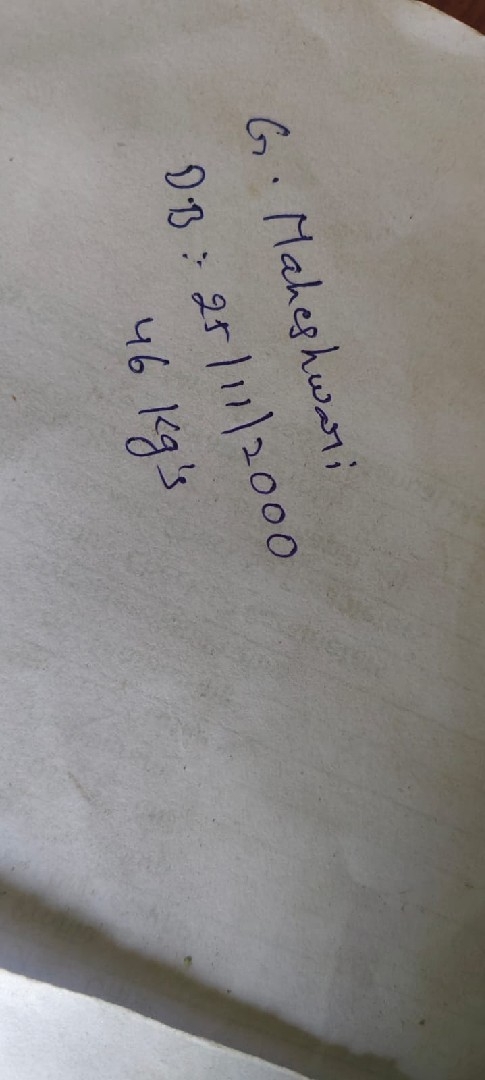 G. Maheshwari
DB : 25/11/2000
46 kg's